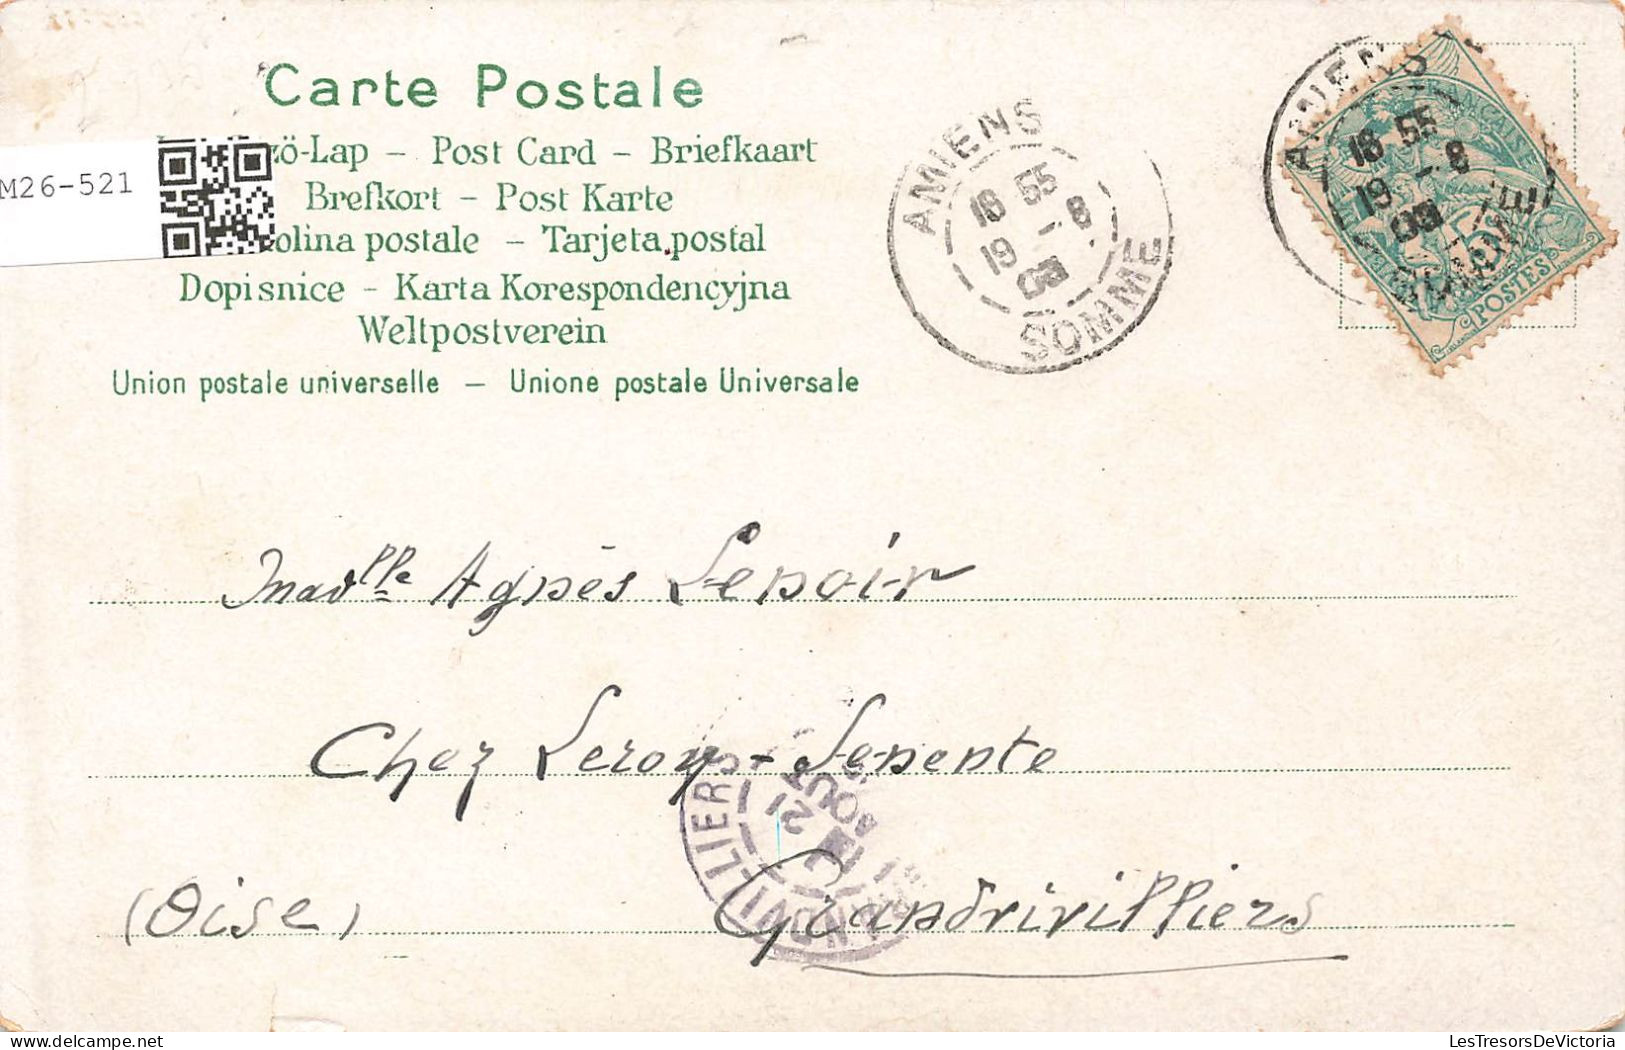 Carte Postale
ö-Lap – Post Card – Briefkaart
M26-521
Brefkort – Post Karte
olina postale – Tarjeta postal
Dopisnice – Karta Korespondencyjna
Weltpostverein
Union postale universelle – Unione postale Universale
AMIENS
18 55
19 - 8
03
SOMME
AMIENS
18 55
19 - 8
03
SOMME
FRANÇAISE
5
POSTES
Madlle Agnès Lenoir
Chez Leroy-Senente
21 AOUT
(Oise) Grandvilliers
LesTresorsDeVictoria